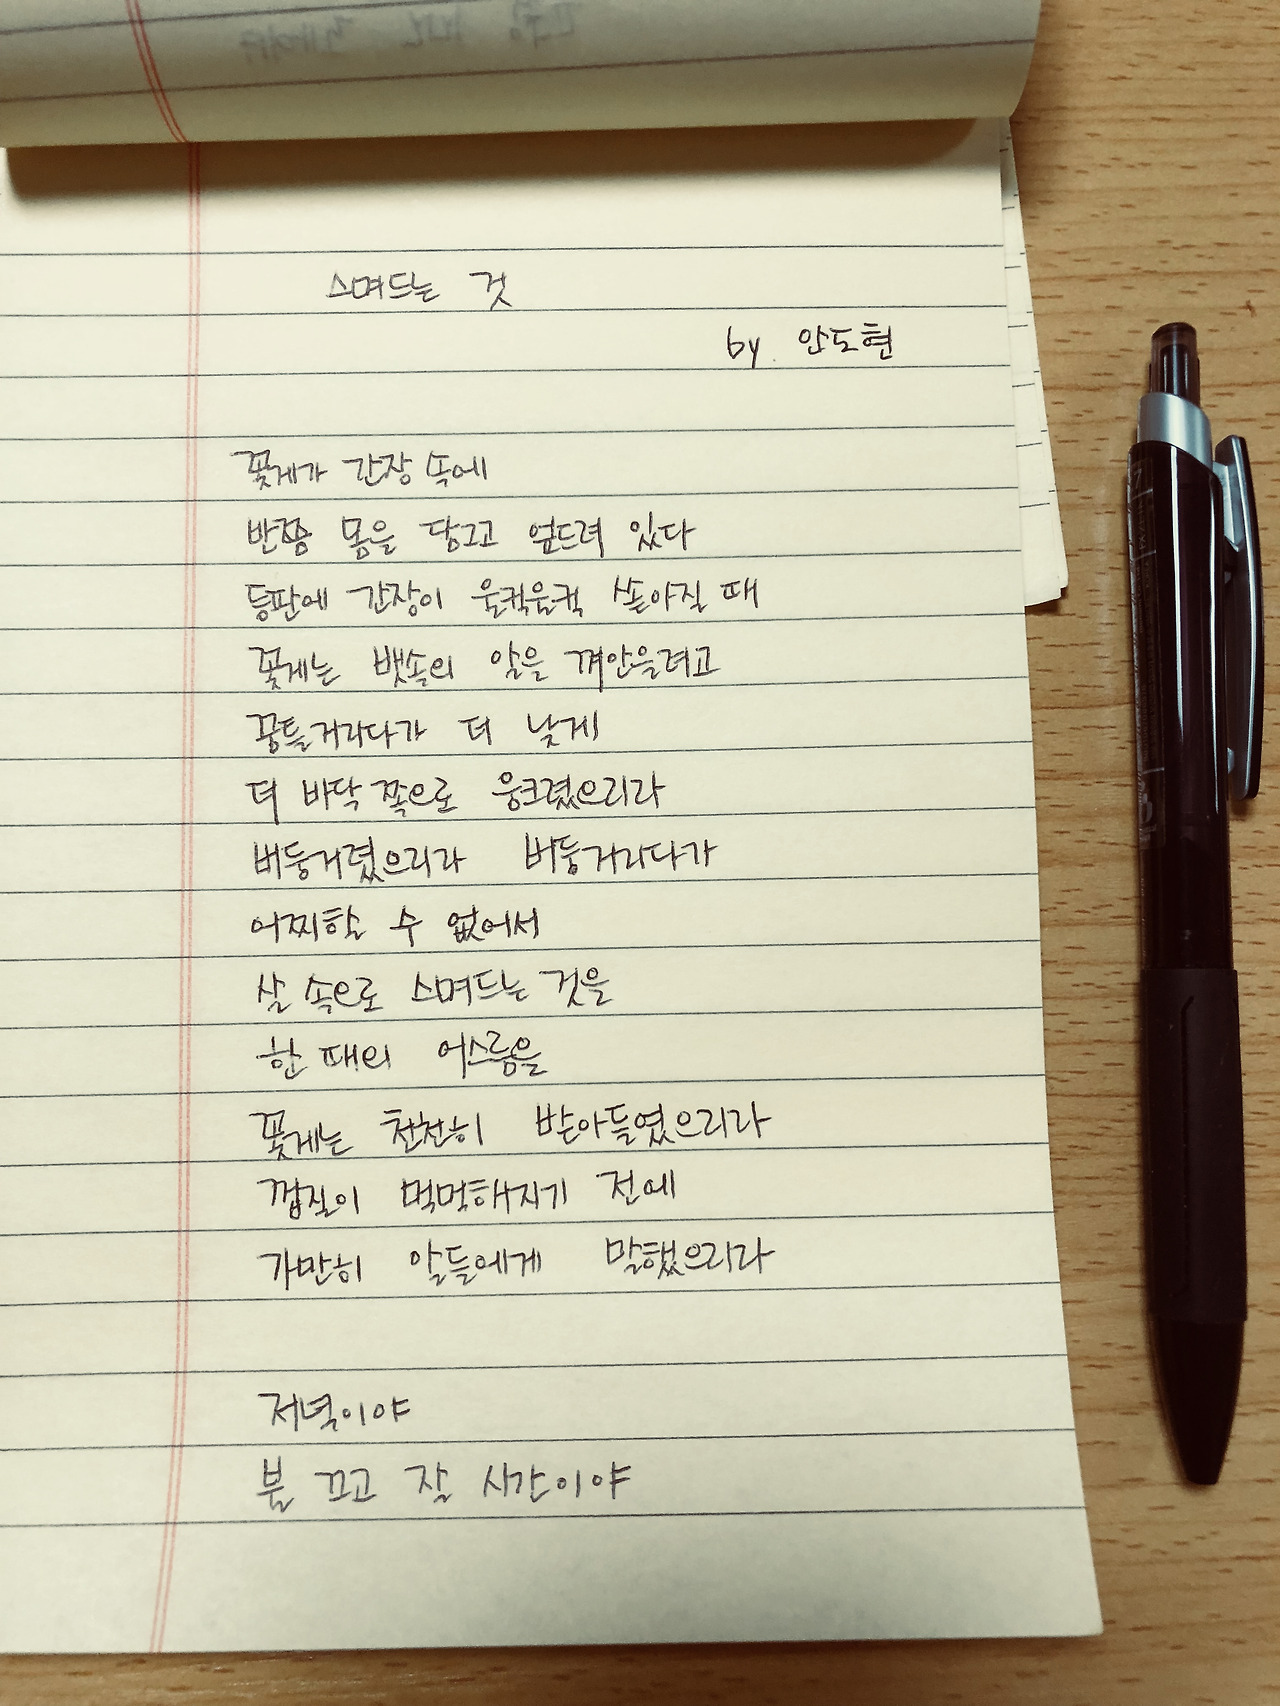 스며드는 것
by. 안도현
꽃게가 간장 속에
반쯤 몸을 담그고 엎드려 있다
등판에 간장이 울컥울컥 쏟아질 때
꽃게는 뱃속의 알을 껴안으려고
꿈틀거리다가 더 낮게
더 바닥 쪽으로 웅크렸으리라
버둥거렸으리라 버둥거리다가
어찌할 수 없어서
살 속으로 스며드는 것을
한 때의 어스름을
꽃게는 천천히 받아들였으리라
껍질이 먹먹해지기 전에
가만히 알들에게 말했으리라
저녁이야
불 끄고 잘 시간이야